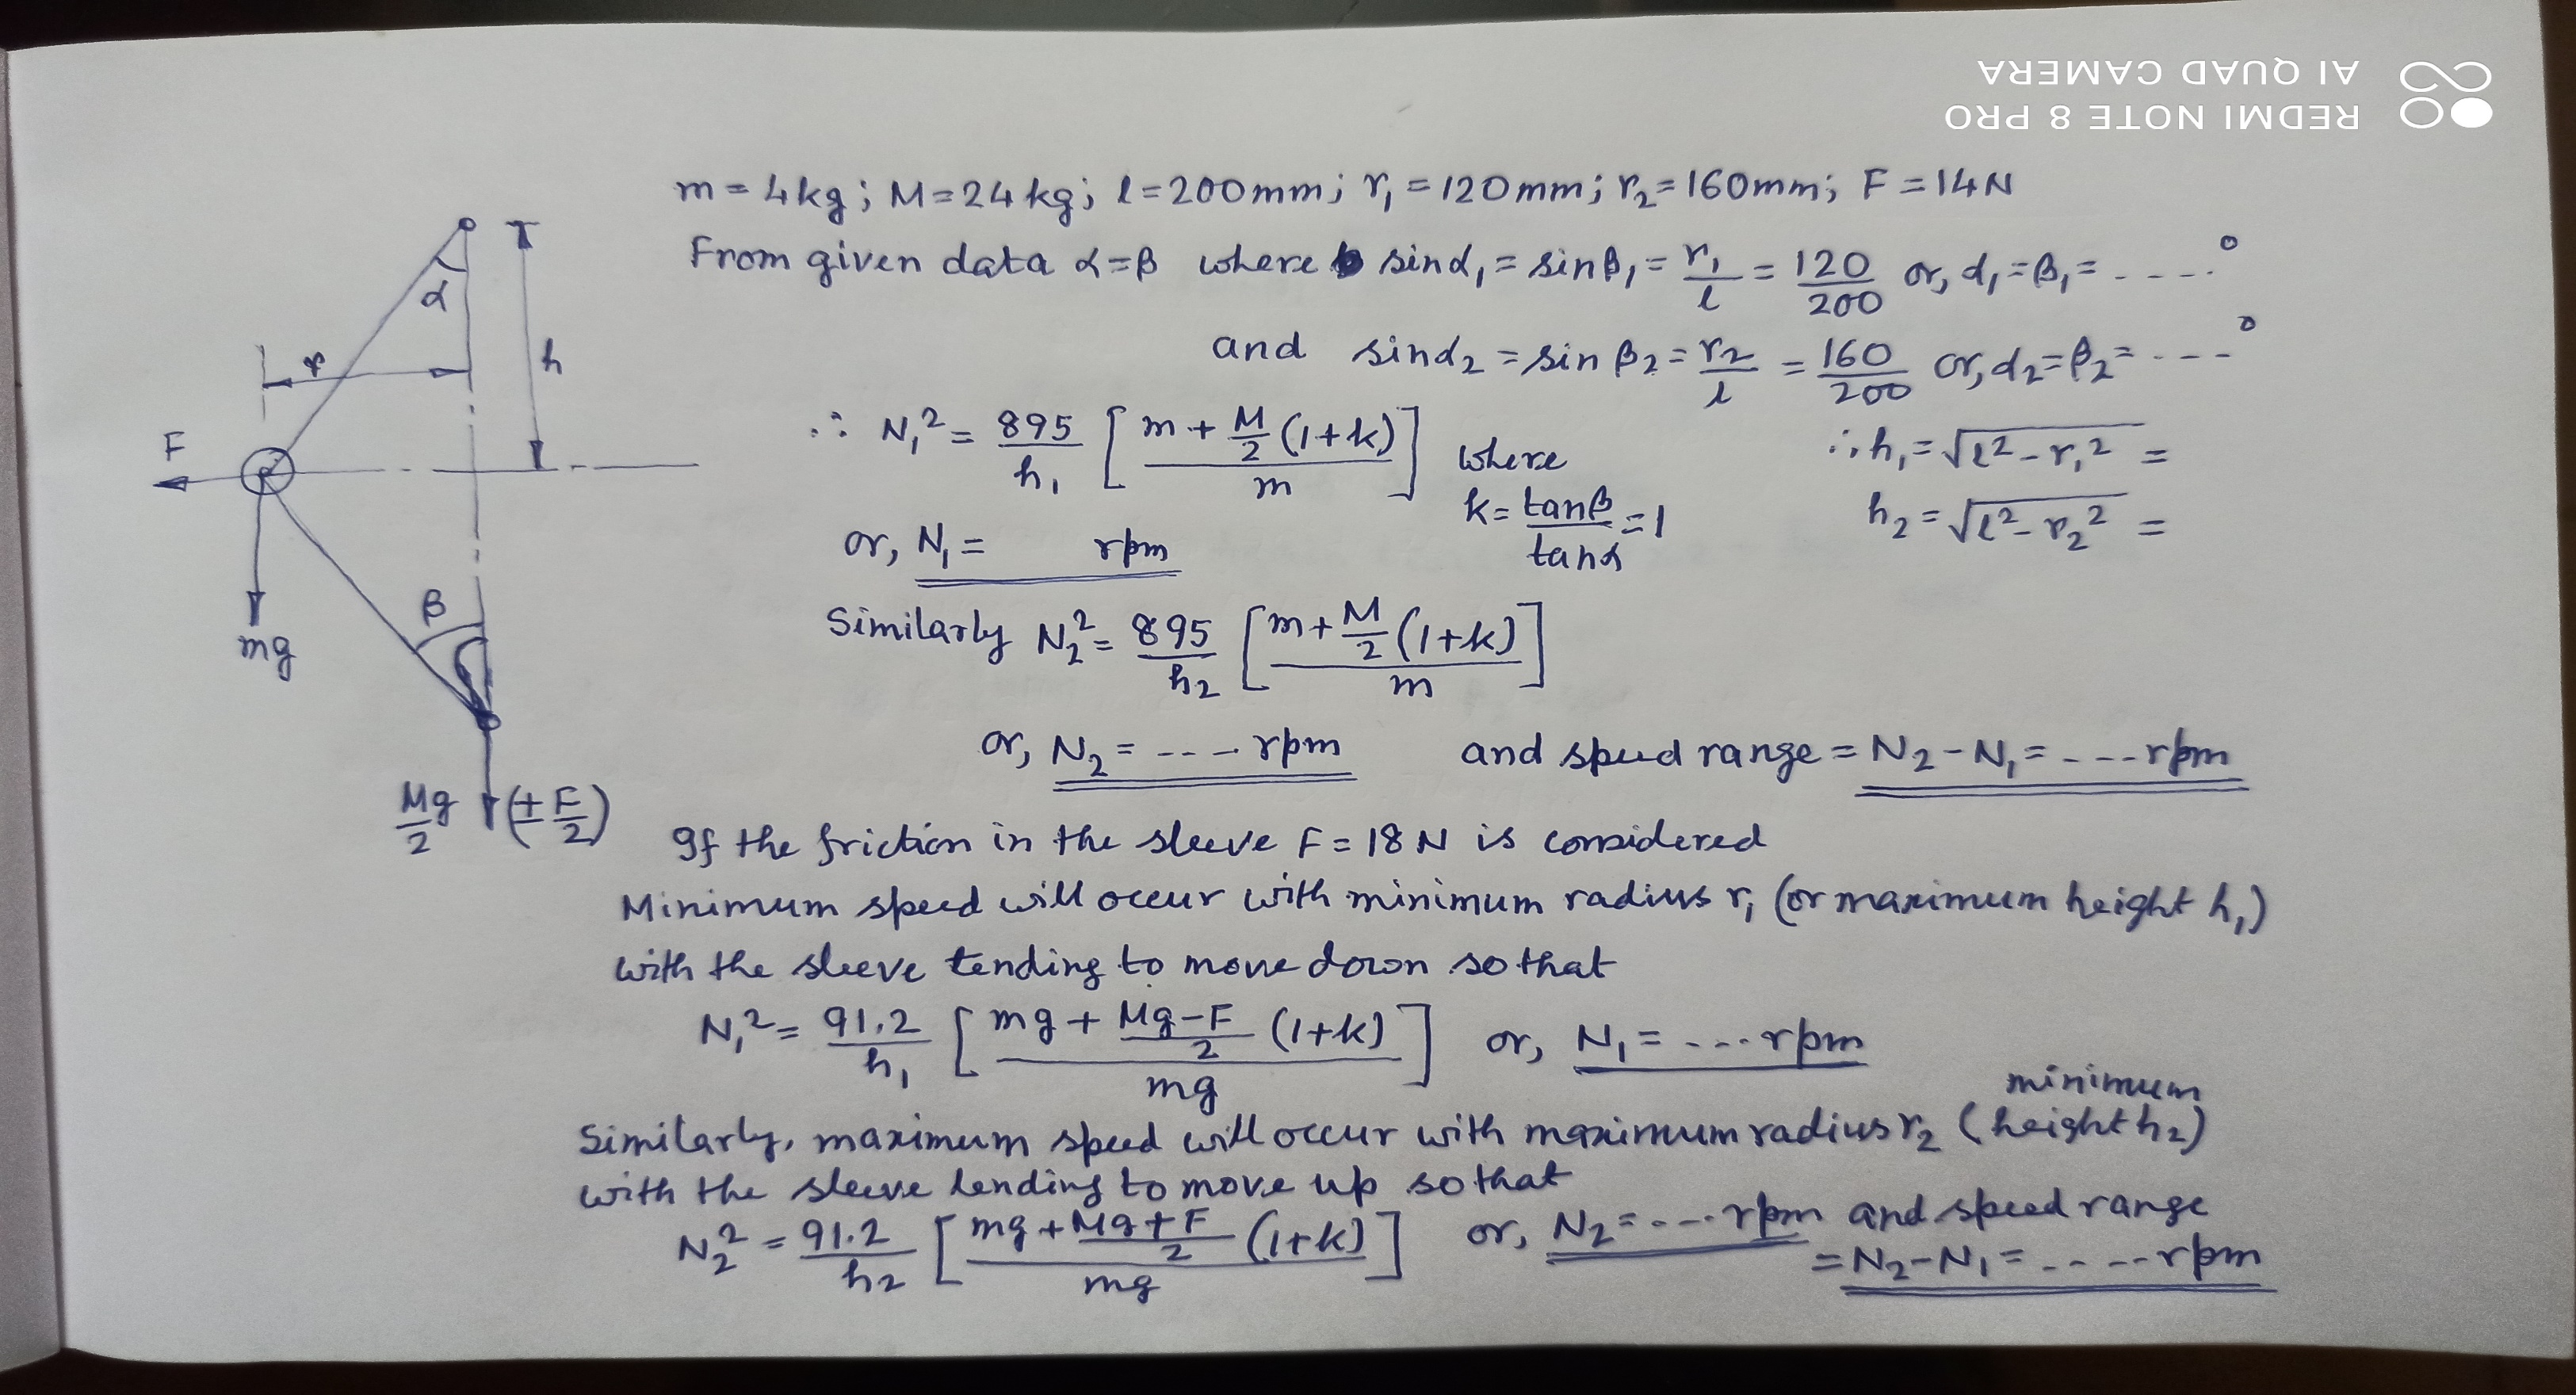 REDMI NOTE 8 PRO
AI QUAD CAMERA
m = 4kg; M=24kg; l=200mm; r₁=120mm; r₂=160mm; F=14N
From given data α=β where sinα₁ = sinβ₁ = r₁/l = 120/200 or, α₁=β₁= - - - - °
and sinα₂ = sin β₂ = r₂/l = 160/200 or, α₂=β₂= - - - - °
∴ N₁² = 895/h₁ [ (m + M/2 (1+k)) / m ] where k = tanβ/tanα = 1
∴ h₁ = √(l² - r₁²) =
h₂ = √(l² - r₂²) =
or, N₁ = rpm
Similarly N₂² = 895/h₂ [ (m + M/2 (1+k)) / m ]
or, N₂ = - - - rpm and speed range = N₂ - N₁ = - - - rpm
α
r
h
F
mg
β
Mg/2 (± F/2)
If the friction in the sleeve F = 18 N is considered
Minimum speed will occur with minimum radius r₁ (or maximum height h₁)
with the sleeve tending to move down so that
N₁² = 91.2/h₁ [ (mg + (Mg-F)/2 (1+k)) / mg ] or, N₁ = ... rpm
Similarly, maximum speed will occur with maximum radius r₂ (minimum height h₂)
with the sleeve tending to move up so that
N₂² = 91.2/h₂ [ (mg + (Mg+F)/2 (1+k)) / mg ] or, N₂ = - - - rpm and speed range
= N₂-N₁ = - - - - rpm